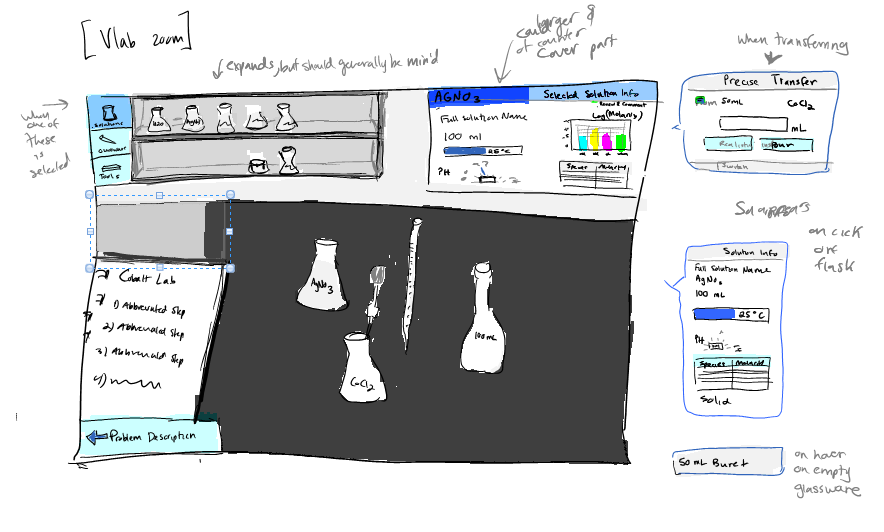 [Vlab zoom]
expands, but should generally be min'd
larger &
could
of counter
cover part
When transferring
When
one of
these
is
selected
Solutions
Glassware
Tools
H2O
AgNO3
AGNO3
Selected Solution Info
Full Solution Name
100 ml
25°C
PH
Log(Molarity)
Species
Precise Transfer
From 50mL
CoCl2
mL
Realistic
Pour
Cobalt Lab
1) Abbreviated Step
2) Abbreviated Step
3) Abbreviated Step
4)
Problem Description
AgNO3
CoCl2
100mL
on click
of
flask
Solution Info
Full Solution Name
AgNO3
100 mL
25°C
PH
Species
Molarity
Solid
50 mL Buret
on hover
on empty
glassware